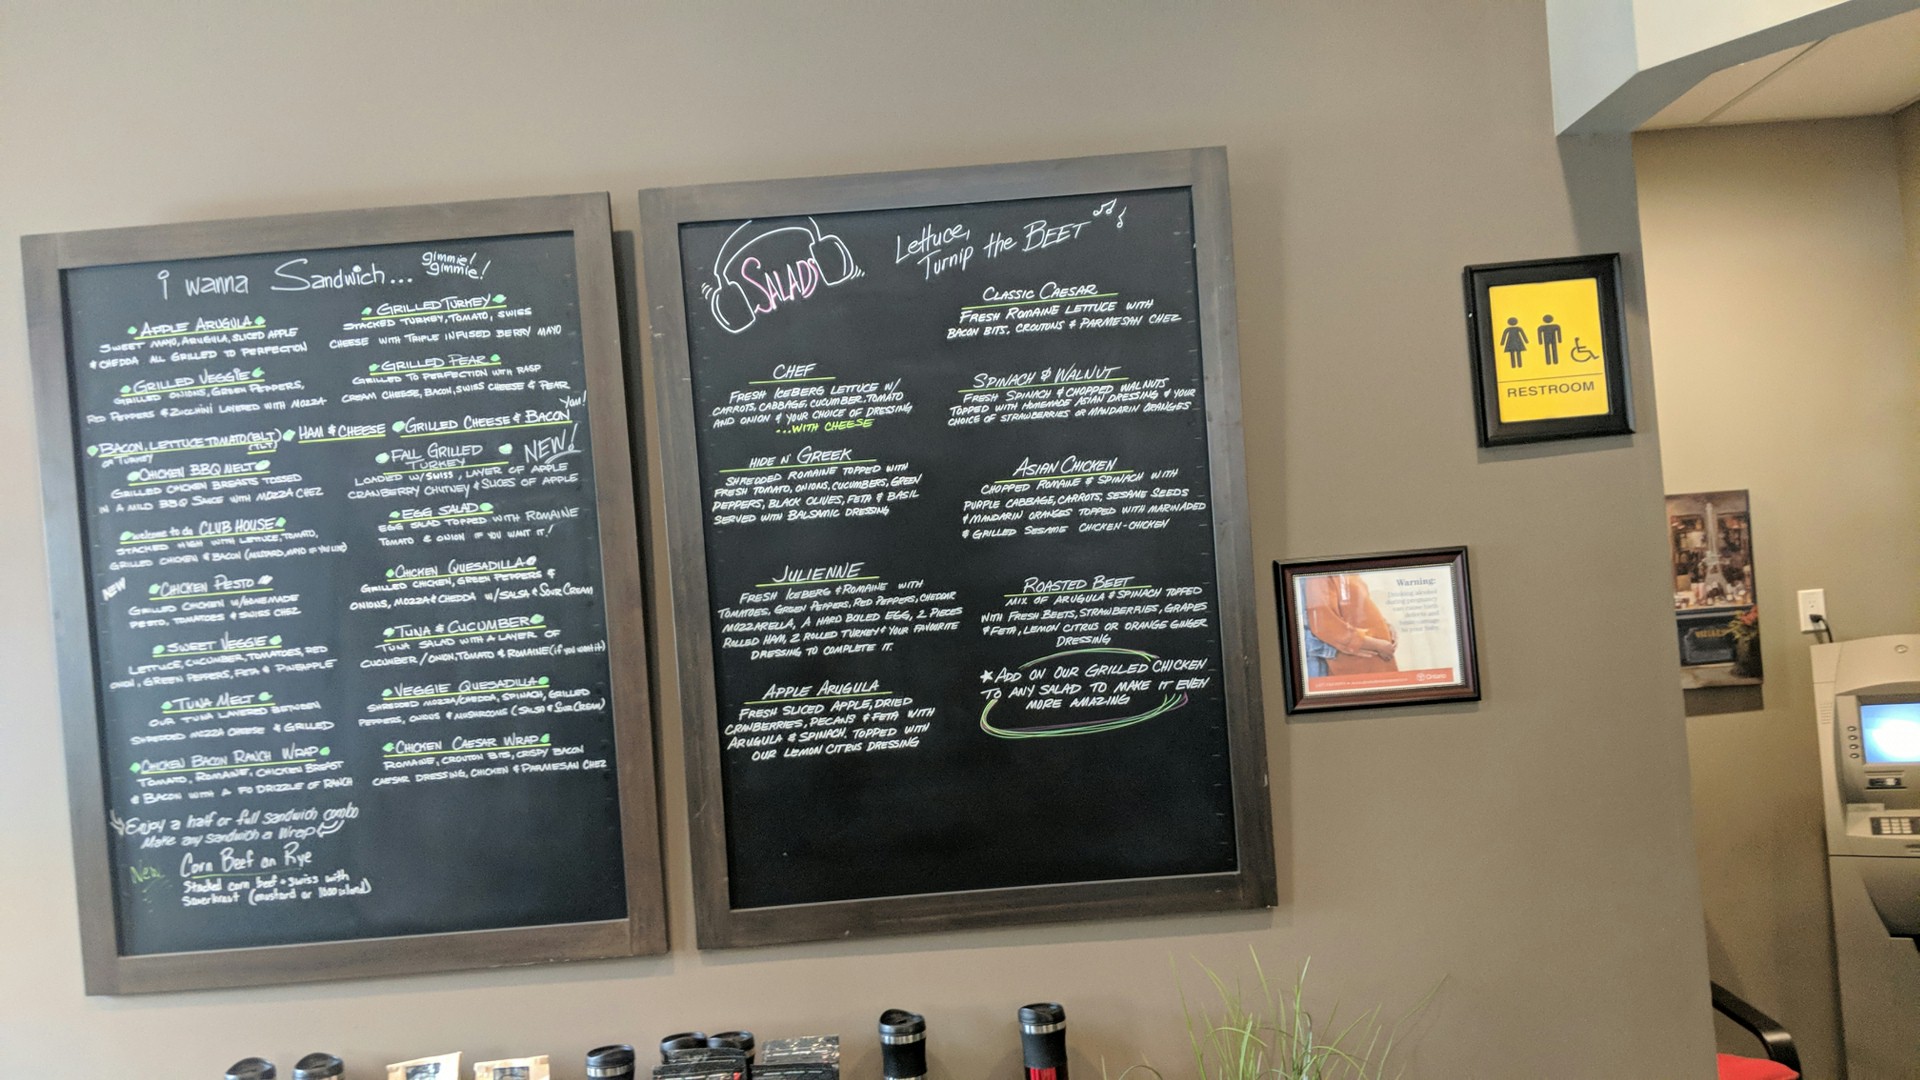 i wanna Sandwich... gimmie! gimmie!
APPLE ARUGULA
SWEET MAYO, ARUGULA, SLICED APPLE
& CHEDDA ALL GRILLED TO PERFECTION
GRILLED VEGGIE
GRILLED ONIONS, GREEN PEPPERS,
RED PEPPERS & ZUCCHINI LAYERED WITH MOZZA
GRILLED TURKEY
STACKED TURKEY, TOMATO, SWISS
CHEESE WITH TRIPLE INFUSED BERRY MAYO
GRILLED PEAR
GRILLED TO PERFECTION WITH RASP
CREAM CHEESE, BACON, SWISS CHEESE & PEAR
BACON, LETTUCE TOMATO (BLT) HAM & CHEESE GRILLED CHEESE & BACON Yum!
or TURKEY (TLT)
CHICKEN BBQ MELT
GRILLED CHICKEN BREASTS TOSSED
IN A MILD BBQ SAUCE WITH MOZZA CHEZ
welcome to da CLUB HOUSE
STACKED HIGH WITH LETTUCE, TOMATO,
GRILLED CHICKEN & BACON (MUSTARD, MAYO IF YOU LIKE)
NEW
CHICKEN PESTO
GRILLED CHICKEN W/HOMEMADE
PESTO, TOMATOES & SWISS CHEZ
SWEET VEGGIE
LETTUCE, CUCUMBER, TOMATOES, RED
ONION, GREEN PEPPERS, FETA & PINEAPPLE
TUNA MELT
OUR TUNA LAYERED BETWEEN
SHREDDED MOZZA CHEESE & GRILLED
CHICKEN BACON RANCH WRAP
TOMATO, ROMAINE, CHICKEN BREAST
& BACON WITH A FO DRIZZLE OF RANCH
Enjoy a half or full sandwich combo
Make any sandwich a Wrap
New Corn Beef on Rye
Stacked corn beef + swiss with
Sauerkraut (mustard or 1000 island)
FALL GRILLED NEW!
TURKEY
LOADED W/SWISS, LAYER OF APPLE
CRANBERRY CHUTNEY & SLICES OF APPLE
EGG SALAD
EGG SALAD TOPPED WITH ROMAINE
TOMATO & ONION IF YOU WANT IT!
CHICKEN QUESADILLA
GRILLED CHICKEN, GREEN PEPPERS &
ONIONS, MOZZA & CHEDDA W/SALSA & SOUR CREAM
TUNA & CUCUMBER
TUNA SALAD WITH A LAYER OF
CUCUMBER / ONION, TOMATO & ROMAINE (if you want it)
VEGGIE QUESADILLA
SHREDDED MOZZA/CHEDDA, SPINACH, GRILLED
PEPPERS, ONIONS & MUSHROOMS (SALSA & SOUR CREAM)
CHICKEN CAESAR WRAP
ROMAINE, CROUTON BITS, CRISPY BACON
CAESAR DRESSING, CHICKEN & PARMESAN CHEZ
SALADS
Lettuce,
Turnip the BEET
CLASSIC CAESAR
FRESH ROMAINE LETTUCE WITH
BACON BITS, CROUTONS & PARMESAN CHEZ
CHEF
FRESH ICEBERG LETTUCE W/
CARROTS, CABBAGE, CUCUMBER, TOMATO
AND ONION & YOUR CHOICE OF DRESSING
...WITH CHEESE
SPINACH & WALNUT
FRESH SPINACH & CHOPPED WALNUTS
TOPPED WITH HOMEMADE ASIAN DRESSING & YOUR
CHOICE OF STRAWBERRIES OR MANDARIN ORANGES
HIDE N' GREEK
SHREDDED ROMAINE TOPPED WITH
FRESH TOMATO, ONIONS, CUCUMBERS, GREEN
PEPPERS, BLACK OLIVES, FETA & BASIL
SERVED WITH BALSAMIC DRESSING
ASIAN CHICKEN
CHOPPED ROMAINE & SPINACH WITH
PURPLE CABBAGE, CARROTS, SESAME SEEDS
& MANDARIN ORANGES TOPPED WITH MARINADED
& GRILLED SESAME CHICKEN-CHICKEN
JULIENNE
FRESH ICEBERG & ROMAINE WITH
TOMATOES, GREEN PEPPERS, RED PEPPERS, CHEDDAR
MOZZARELLA, A HARD BOILED EGG, 2 PIECES
ROLLED HAM, 2 ROLLED TURKEY & YOUR FAVOURITE
DRESSING TO COMPLETE IT.
ROASTED BEET
MIX OF ARUGULA & SPINACH TOPPED
WITH FRESH BEETS, STRAWBERRIES, GRAPES
& FETA, LEMON CITRUS OR ORANGE GINGER
DRESSING
APPLE ARUGULA
FRESH SLICED APPLE, DRIED
CRANBERRIES, PECANS & FETA WITH
ARUGULA & SPINACH. TOPPED WITH
OUR LEMON CITRUS DRESSING
ADD ON OUR GRILLED CHICKEN
TO ANY SALAD TO MAKE IT EVEN
MORE AMAZING
RESTROOM
Warning:
Drinking alcohol
during pregnancy
can cause birth
defects and
brain damage
to your baby.
Ontario